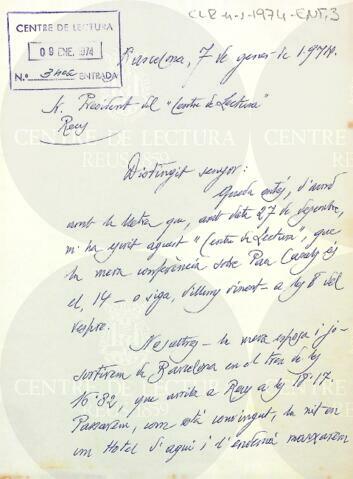 CLR-4-1-1974-ENT.3
CENTRE DE LECTURA
09 ENE. 1974
N.o ENTRADA
Barcelona, 7 de gener de 1.974.
Sr. President del "Centre de Lectura"
Reus
Distingit senyor:
Queda entés, d'acord
amb la lletra que, amb data 27 de desembre,
m'ha escrit aquest "Centre de Lectura", que
la meva conferència sobre Pau Casals és
el, 14 - o siga, dilluns vinent - a les 8 del
vespre.
Nosaltres - la meva esposa i jo -
sortirem de Barcelona en el tren de les
que arriba a Reus a les 18'17.
Passarem, com està convingut, la nit en
un Hotel d'aquí i l'endemà marxarem
CENTRE DE LECTURA
REUS 1859
CENTRE DE LECTURA
REUS 1859